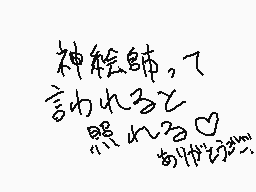 神絵師って
言われると
照れる♡
ありがとうござい